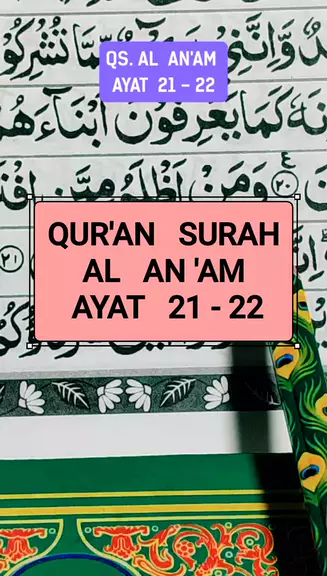 QS. AL AN'AM
AYAT 21 - 22
وَّاِنَّنِيْ مِّمَّا تُشْرِكُوْ
نَهٗ كَمَا يَعْرِفُوْنَ اَبْنَاۤءَهُمْ
٢٠ وَمَنْ اَظْلَمُ مِمَّنِ افْتَ
QUR'AN SURAH
AL AN 'AM
AYAT 21 - 22
٢١